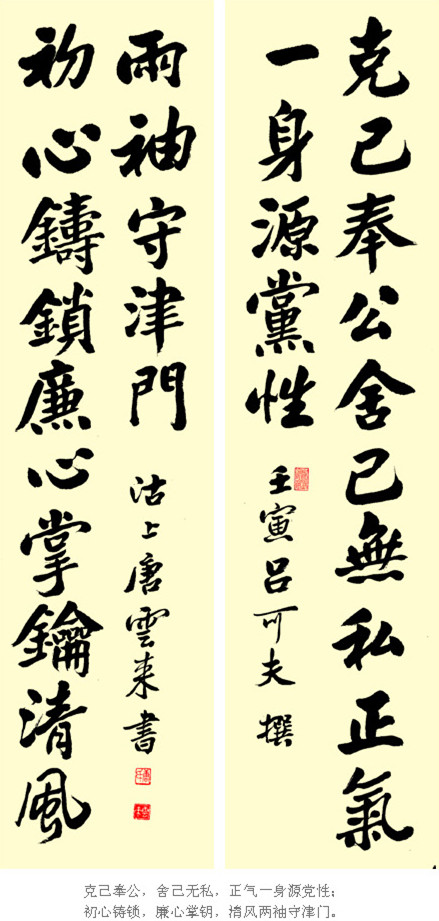 克己奉公舍己無私正氣
一身源黨性
壬寅吕可夫 撰
初心鑄鎖廉心掌鑰清風
兩袖守津門
沽上唐雲來書
克己奉公，舍己无私，正气一身源党性；
初心铸锁，廉心掌钥，清风两袖守津门。